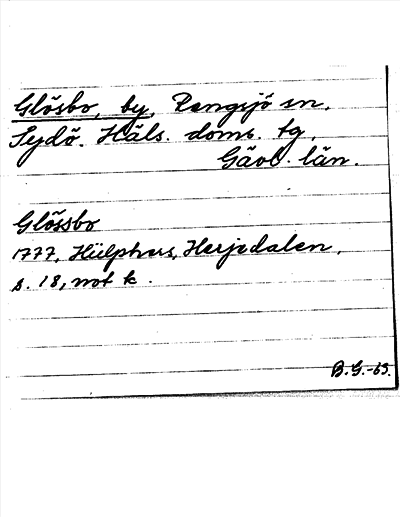 Glösbo, by, Rengsjö sn,
Sydö. Häls. doms. tg,
Gävl. län.
Glössbo
1777, Hülphers, Herjedalen,
s. 18, not k.
B.G.-65.